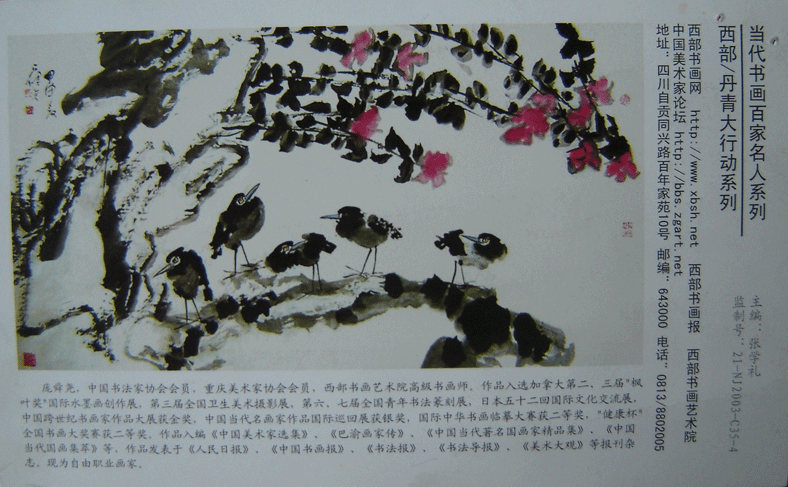 当代书画百家名人系列
西部/丹青大行动系列
主编：张学礼
监制号：21-NJ2003-C35-4
西部书画网 http://www.xbsh.net 西部书画报 西部书画艺术院
中国美术家论坛 http://bbs.zgart.net
地址：四川自贡同兴路百年家苑10号 邮编：643000 电话：0813/8802005
庞舜尧，中国书法家协会会员，重庆美术家协会会员，西部书画艺术院高级书画师。作品入选加拿大第二、三届"枫
叶奖"国际水墨画创作展，第三届全国卫生美术摄影展，第六、七届全国青年书法篆刻展，日本五十二回国际文化交流展，
中国跨世纪书画家作品大展获金奖，中国当代名画家作品国际巡回展获银奖，国际中华书画临摹大赛获二等奖，"健康杯"
全国书画大奖赛获二等奖。作品入编《中国美术家选集》、《巴渝画家传》、《中国当代著名国画家精品集》、《中国
当代国画集萃》等，作品发表于《人民日报》、《中国书画报》、《书法报》、《书法导报》、《美术大观》等报刊杂
志。现为自由职业画家。